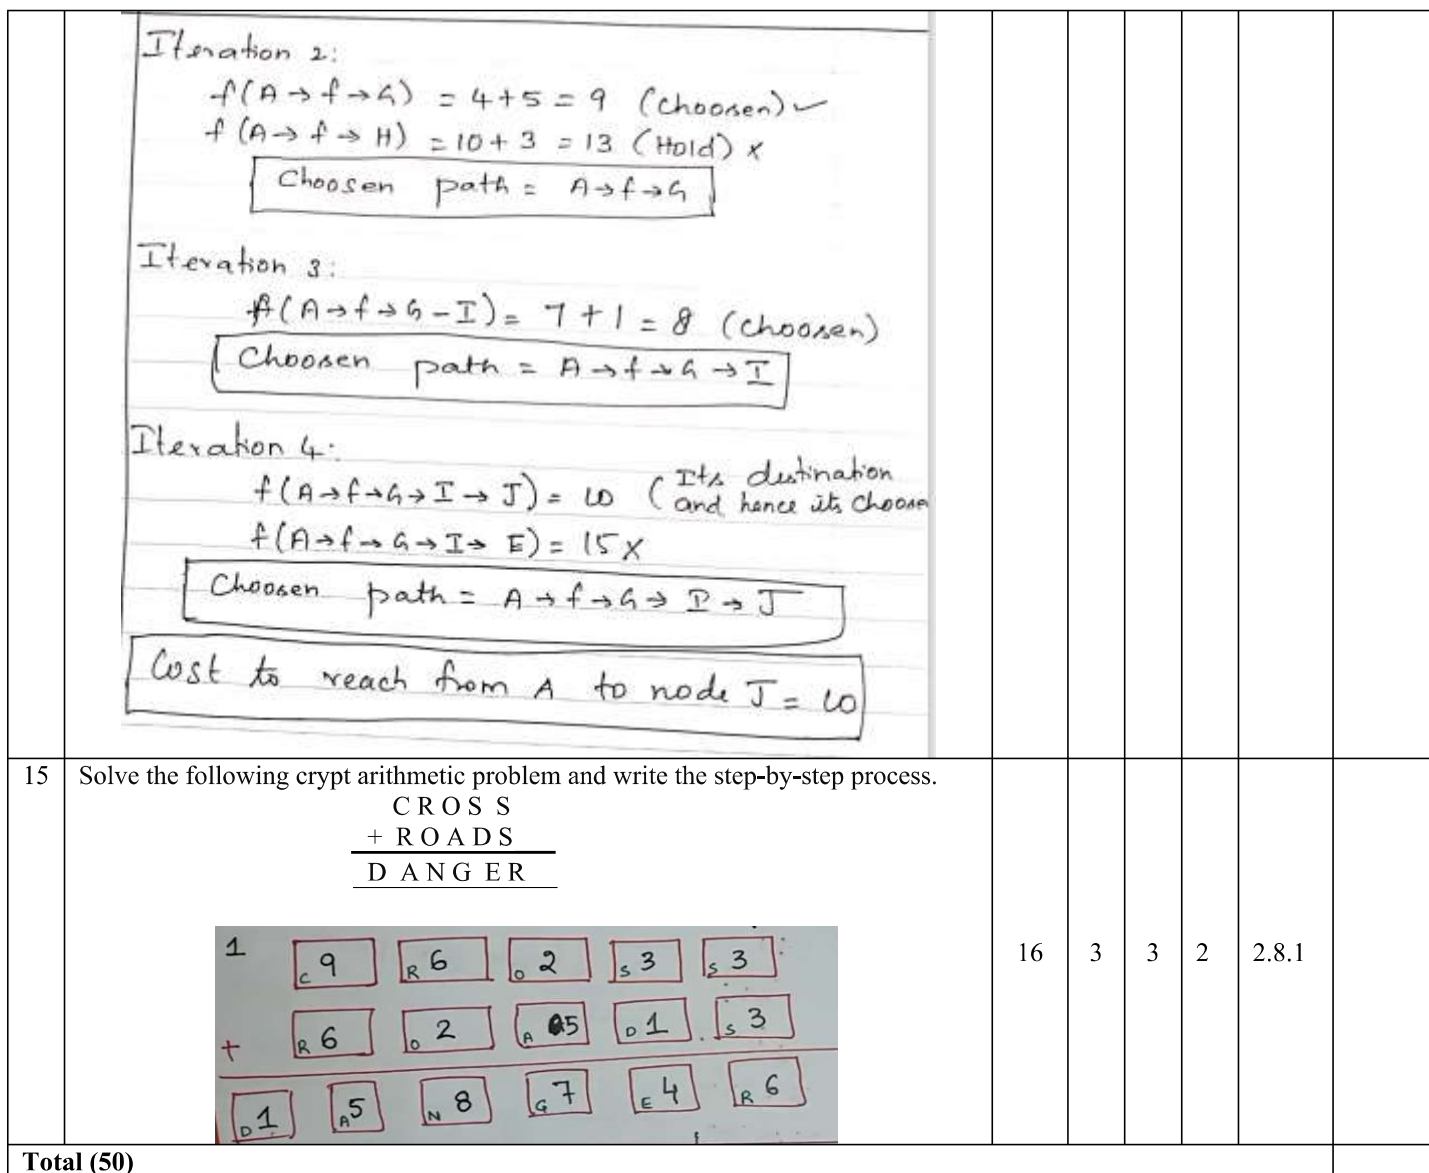 Iteration 2:
f(A→f→G) = 4+5 = 9 (choosen) ✓
f(A→f→H) = 10+3 = 13 (Hold) x
Choosen path = A→f→G
Iteration 3:
f(A→f→G-I) = 7+1 = 8 (choosen)
Choosen path = A→f→G→I
Iteration 4:
f(A→f→G→I→J) = 10 (Its destination
and hence its choose
f(A→f→G→I→E) = 15 X
Choosen path = A→f→G→I→J
Cost to reach from A to node J = 10
15 Solve the following crypt arithmetic problem and write the step-by-step process.
C R O S S
+ R O A D S
D A N G E R
16 3 3 2 2.8.1
1 C 9 R 6 O 2 S 3 S 3
+ R 6 O 2 A 5 D 1 S 3
D 1 A 5 N 8 G 7 E 4 R 6
Total (50)